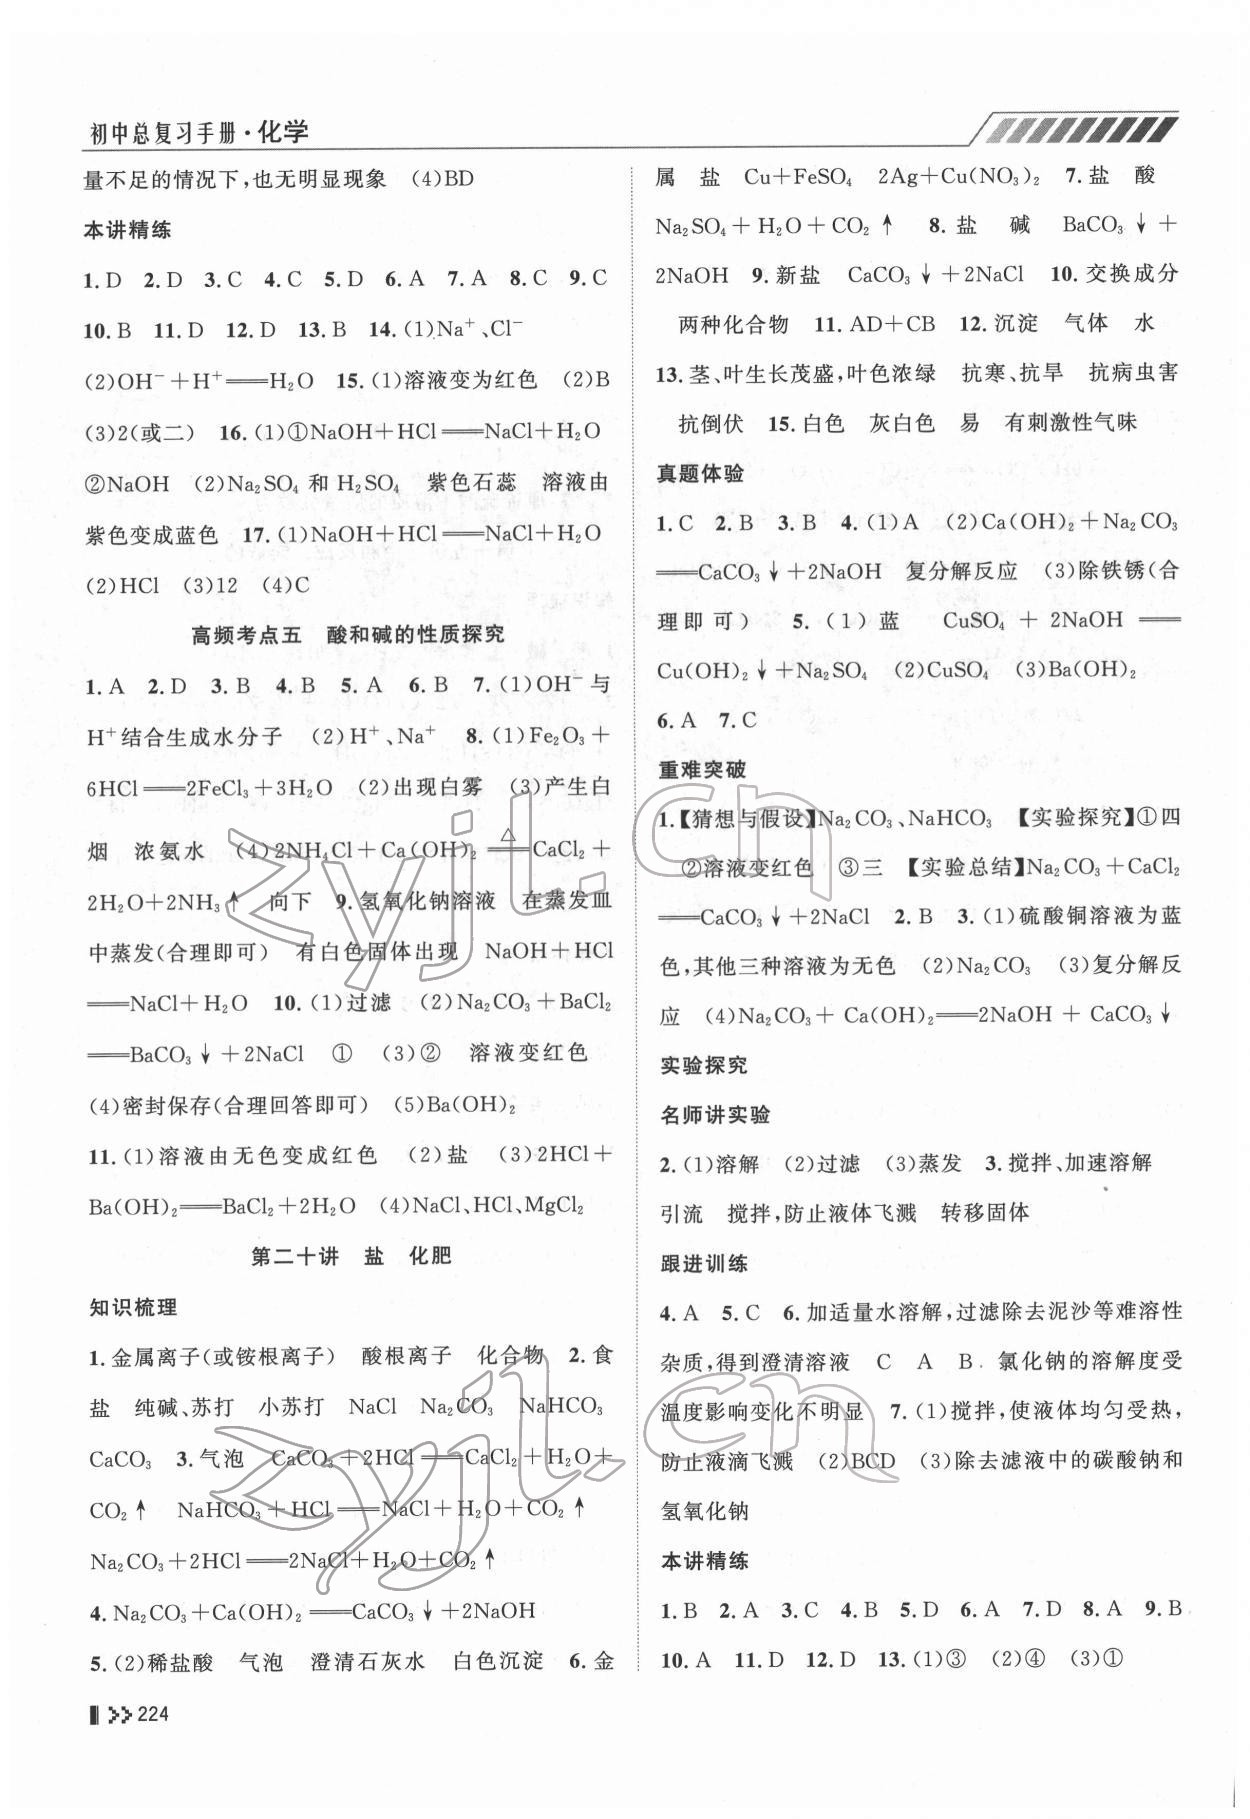 初中总复习手册·化学
量不足的情况下,也无明显现象 (4)BD
本讲精练
1.D 2.D 3.C 4.C 5.D 6.A 7.A 8.C 9.C
10.B 11.D 12.D 13.B 14.(1)Na⁺、Cl⁻
(2)OH⁻+H⁺══H₂O 15.(1)溶液变为红色 (2)B
(3)2(或二) 16.(1)①NaOH+HCl══NaCl+H₂O
②NaOH (2)Na₂SO₄ 和 H₂SO₄ 紫色石蕊 溶液由
紫色变成蓝色 17.(1)NaOH+HCl══NaCl+H₂O
(2)HCl (3)12 (4)C
高频考点五 酸和碱的性质探究
1.A 2.D 3.B 4.B 5.A 6.B 7.(1)OH⁻与
H⁺结合生成水分子 (2)H⁺、Na⁺ 8.(1)Fe₂O₃+
6HCl══2FeCl₃+3H₂O (2)出现白雾 (3)产生白
烟 浓氨水 (4)2NH₄Cl+Ca(OH)₂══△CaCl₂+
2H₂O+2NH₃↑ 向下 9.氢氧化钠溶液 在蒸发皿
中蒸发(合理即可) 有白色固体出现 NaOH+HCl
══NaCl+H₂O 10.(1)过滤 (2)Na₂CO₃+BaCl₂
══BaCO₃↓+2NaCl ① (3)② 溶液变红色
(4)密封保存(合理回答即可) (5)Ba(OH)₂
11.(1)溶液由无色变成红色 (2)盐 (3)2HCl+
Ba(OH)₂══BaCl₂+2H₂O (4)NaCl、HCl、MgCl₂
第二十讲 盐 化肥
知识梳理
1.金属离子(或铵根离子) 酸根离子 化合物 2.食
盐 纯碱、苏打 小苏打 NaCl Na₂CO₃ NaHCO₃
CaCO₃ 3.气泡 CaCO₃+2HCl══CaCl₂+H₂O+
CO₂↑ NaHCO₃+HCl══NaCl+H₂O+CO₂↑
Na₂CO₃+2HCl══2NaCl+H₂O+CO₂↑
4.Na₂CO₃+Ca(OH)₂══CaCO₃↓+2NaOH
5.(2)稀盐酸 气泡 澄清石灰水 白色沉淀 6.金
224
属 盐 Cu+FeSO₄ 2Ag+Cu(NO₃)₂ 7.盐 酸
Na₂SO₄+H₂O+CO₂↑ 8.盐 碱 BaCO₃↓+
2NaOH 9.新盐 CaCO₃↓+2NaCl 10.交换成分
两种化合物 11.AD+CB 12.沉淀 气体 水
13.茎、叶生长茂盛,叶色浓绿 抗寒、抗旱 抗病虫害
抗倒伏 15.白色 灰白色 易 有刺激性气味
真题体验
1.C 2.B 3.B 4.(1)A (2)Ca(OH)₂+Na₂CO₃
══CaCO₃↓+2NaOH 复分解反应 (3)除铁锈(合
理即可) 5.(1)蓝 CuSO₄+2NaOH══
Cu(OH)₂↓+Na₂SO₄ (2)CuSO₄ (3)Ba(OH)₂
6.A 7.C
重难突破
1.【猜想与假设】Na₂CO₃、NaHCO₃ 【实验探究】①四
②溶液变红色 ③三 【实验总结】Na₂CO₃+CaCl₂
══CaCO₃↓+2NaCl 2.B 3.(1)硫酸铜溶液为蓝
色,其他三种溶液为无色 (2)Na₂CO₃ (3)复分解反
应 (4)Na₂CO₃+Ca(OH)₂══2NaOH+CaCO₃↓
实验探究
名师讲实验
2.(1)溶解 (2)过滤 (3)蒸发 3.搅拌、加速溶解
引流 搅拌,防止液体飞溅 转移固体
跟进训练
4.A 5.C 6.加适量水溶解,过滤除去泥沙等难溶性
杂质,得到澄清溶液 C A B 氯化钠的溶解度受
温度影响变化不明显 7.(1)搅拌,使液体均匀受热,
防止液滴飞溅 (2)BCD (3)除去滤液中的碳酸钠和
氢氧化钠
本讲精练
1.B 2.A 3.C 4.B 5.D 6.A 7.D 8.A 9.B
10.A 11.D 12.D 13.(1)③ (2)④ (3)①
zyjl.cn
zyjl.cn